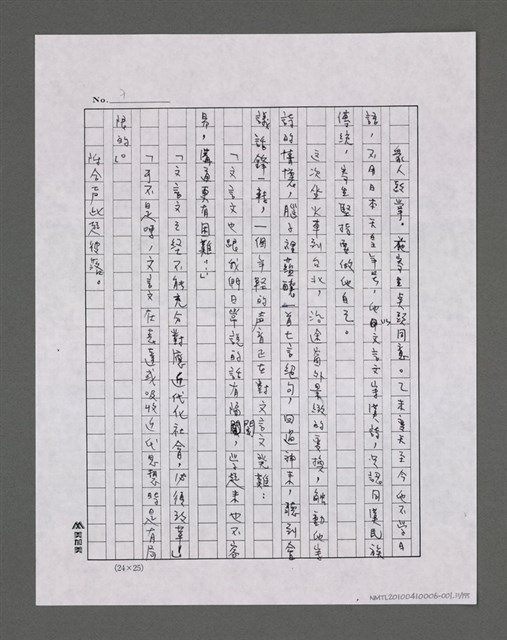 No. 7
眾人鼓掌。施李生点頭同意。乙未事變至今他不學日
語，不用日本天皇年号，他用文言文寫漢詩，只認同漢民族
傳統，李生堅持要做他自己。
這次坐火車到台北，沿途窗外景緻的變換，触動他寫
詩的情懷，腦子裡蘊釀一首七言絕句，回過神來，聽到會
議話鋒一轉，一個年輕的声音正在對文言文発難：
「文言文也跟我們日常說的話有隔閡，學起來也不容
易，溝通更有困難……」
「文言文已經不能充分對應近代化社會，必須改革！」
「可不是嗎，文言文在表達或吸收近代思想時是有局
限的。」
附合声此起彼落。
(24×25)
美加美
NMTL20100410006-001.11/195